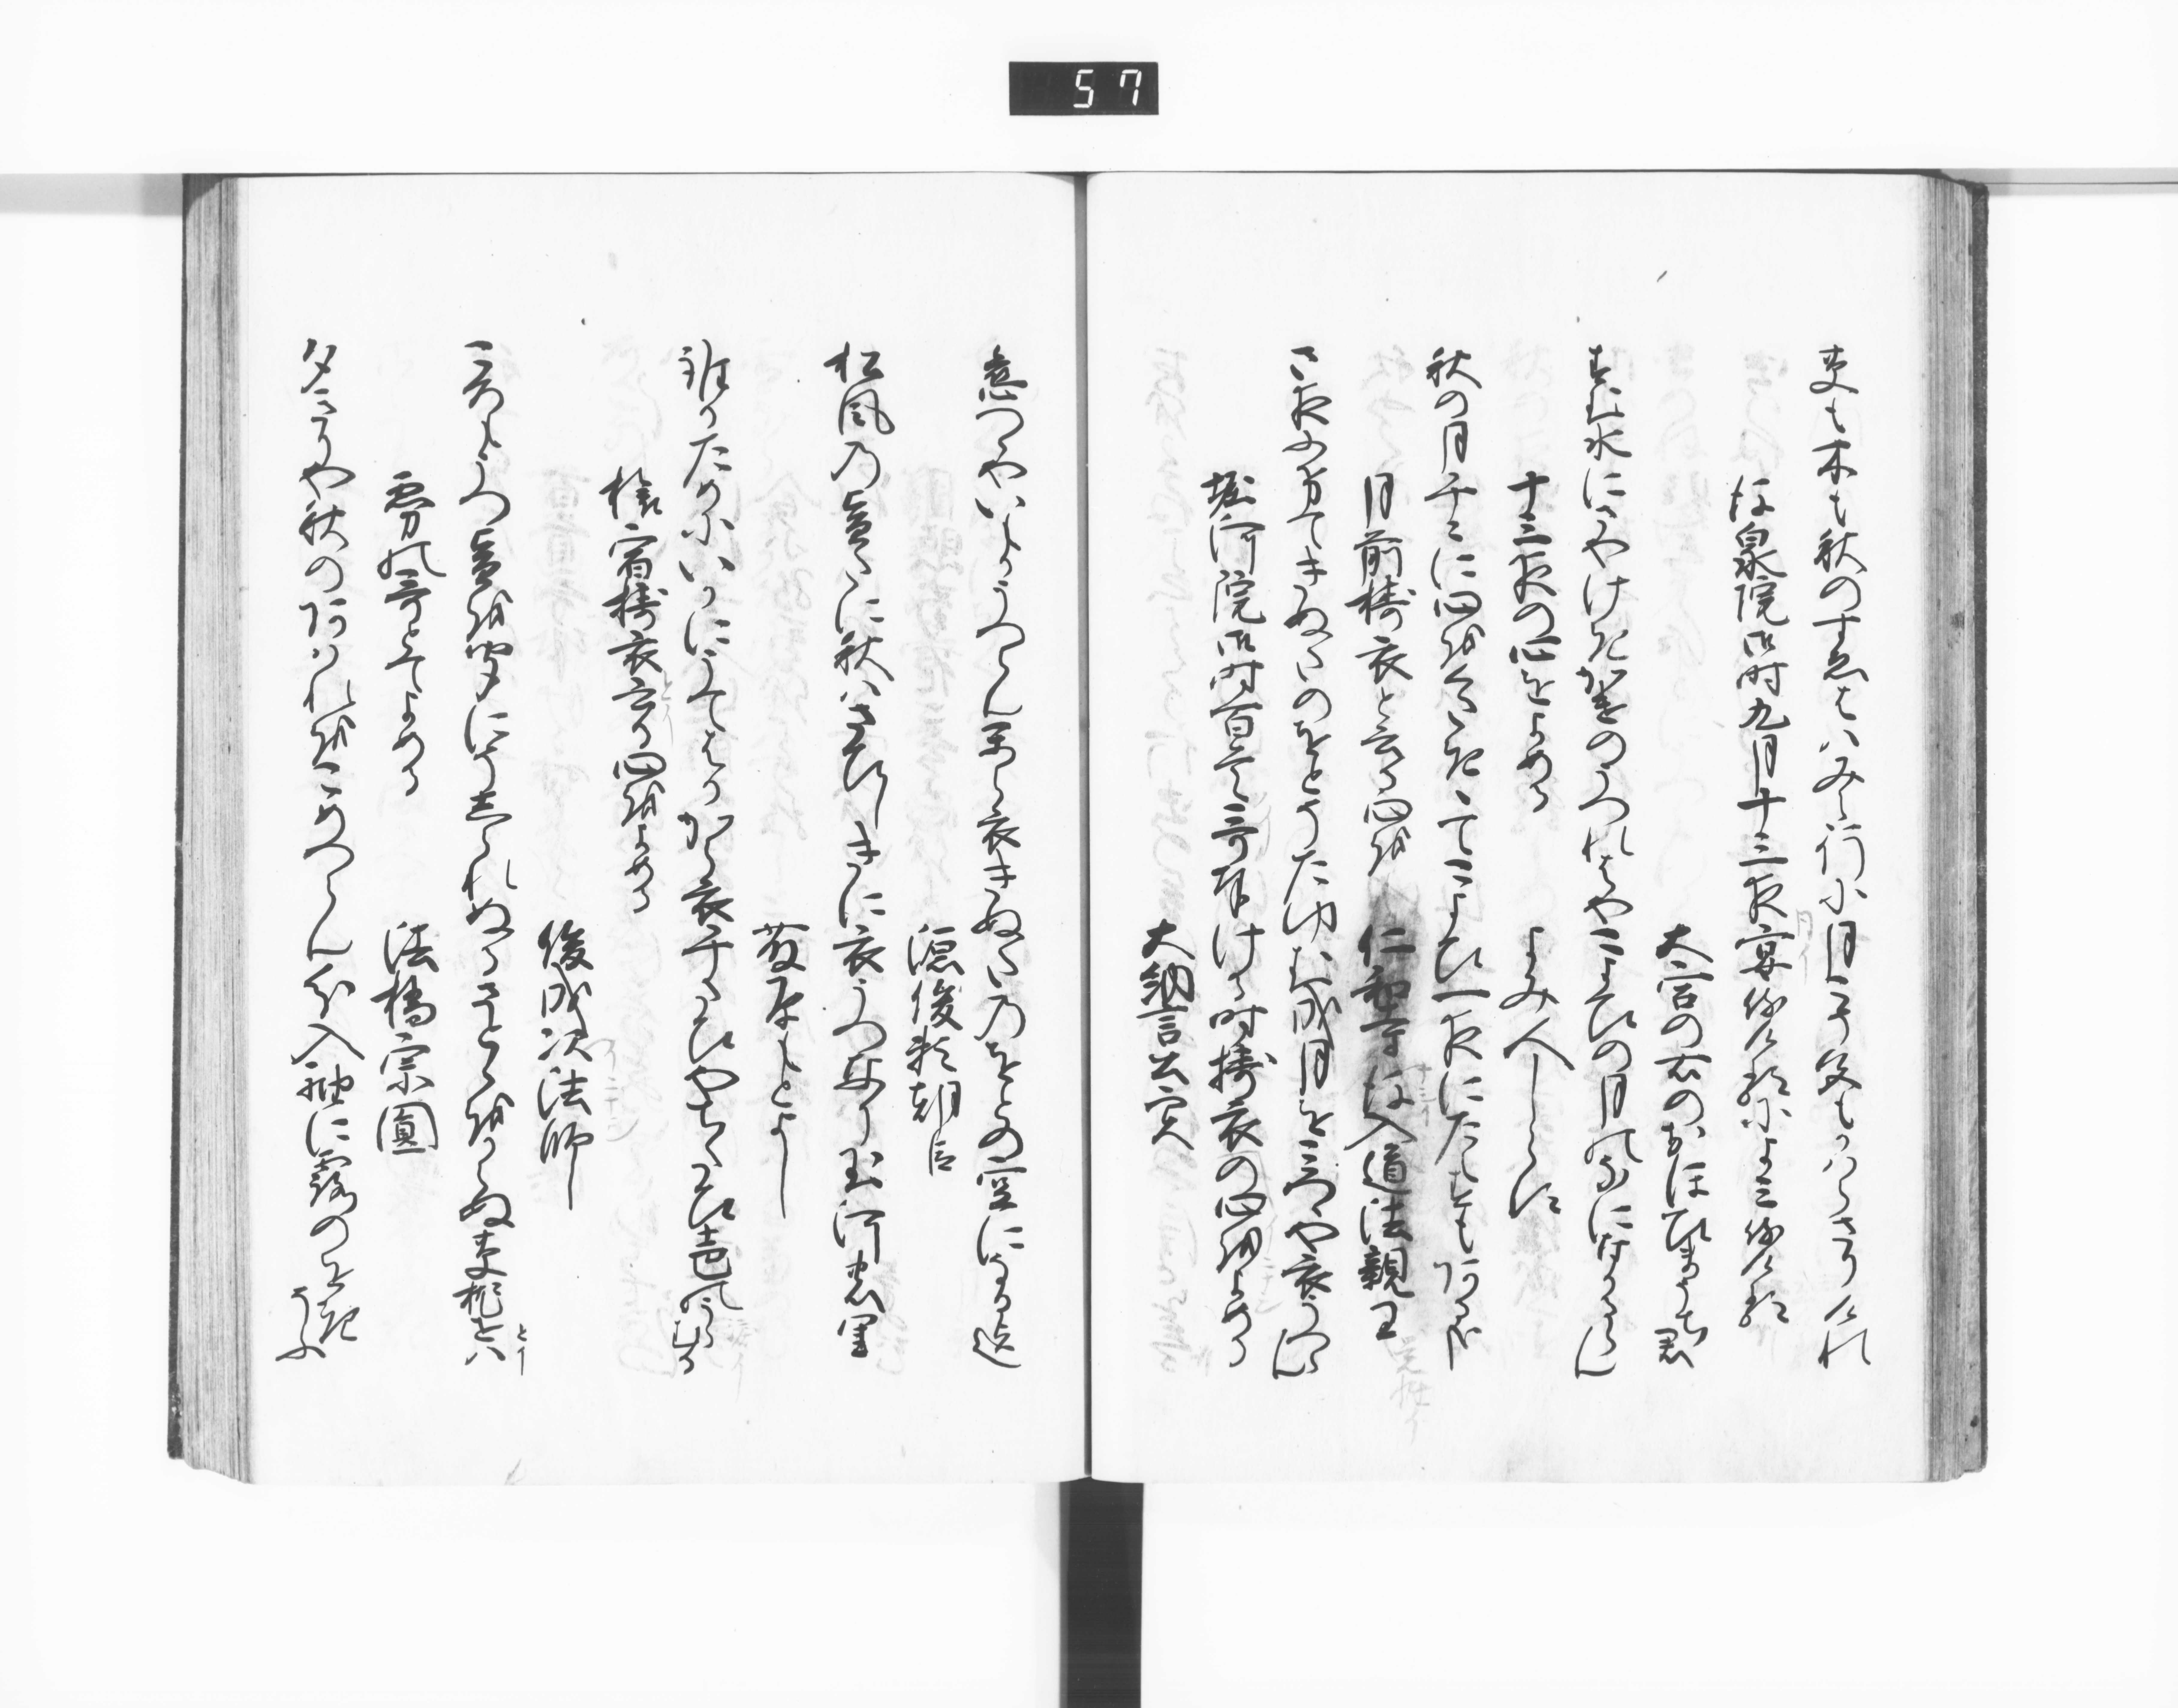 57
草も木も秋のすゑはハみえ行に月こそ色もかハらさりけれ
後泉院御時九月十三夜宴侍ける によミ侍ける
大宮の右のおほひまうち君
すむ水にさやけきかけのうつれはやこよひの月の名になかるらん
十三夜の心をよめる　よみ人しらす
秋の月千ゝに心をくたききてこよひ一夜にたへすもあるかな
月前擣衣と云る心を　仁和寺後入道法親王 覚性
さ夜ふけてきぬたのをとそたゆむ成月をみつゝや衣うつらん
堀河院御時百首哥奉ける時擣衣の心をよめる
大納言公実
恋つゝやいもかうつらん唐衣きぬたのをとの空になる迄
源俊頼朝臣
松風の音たに秋ハさひしきに衣うつ也玉河の里
藤原もとゝし
誰かためにいかにうてはかから衣千たひやちたひ声のうらむる
旅宿擣衣と云る心をよめる
俊盛法師
ころもうつ音を聞にそしられぬるさとゝをからぬ草枕とハ
霧の哥とてよめる　法橋宗圓
夕きりや秋のあはれをこめつらん分入袖に露のをきそふ